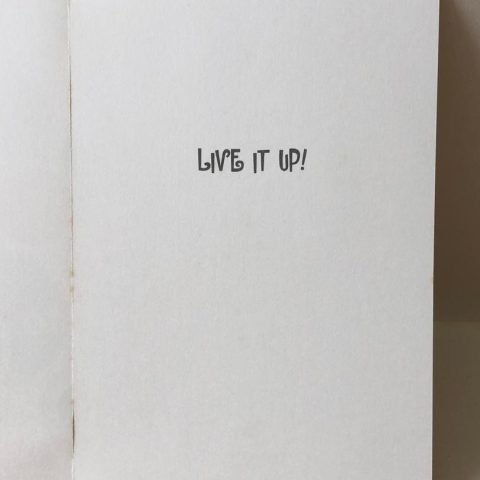 LIVE IT UP!